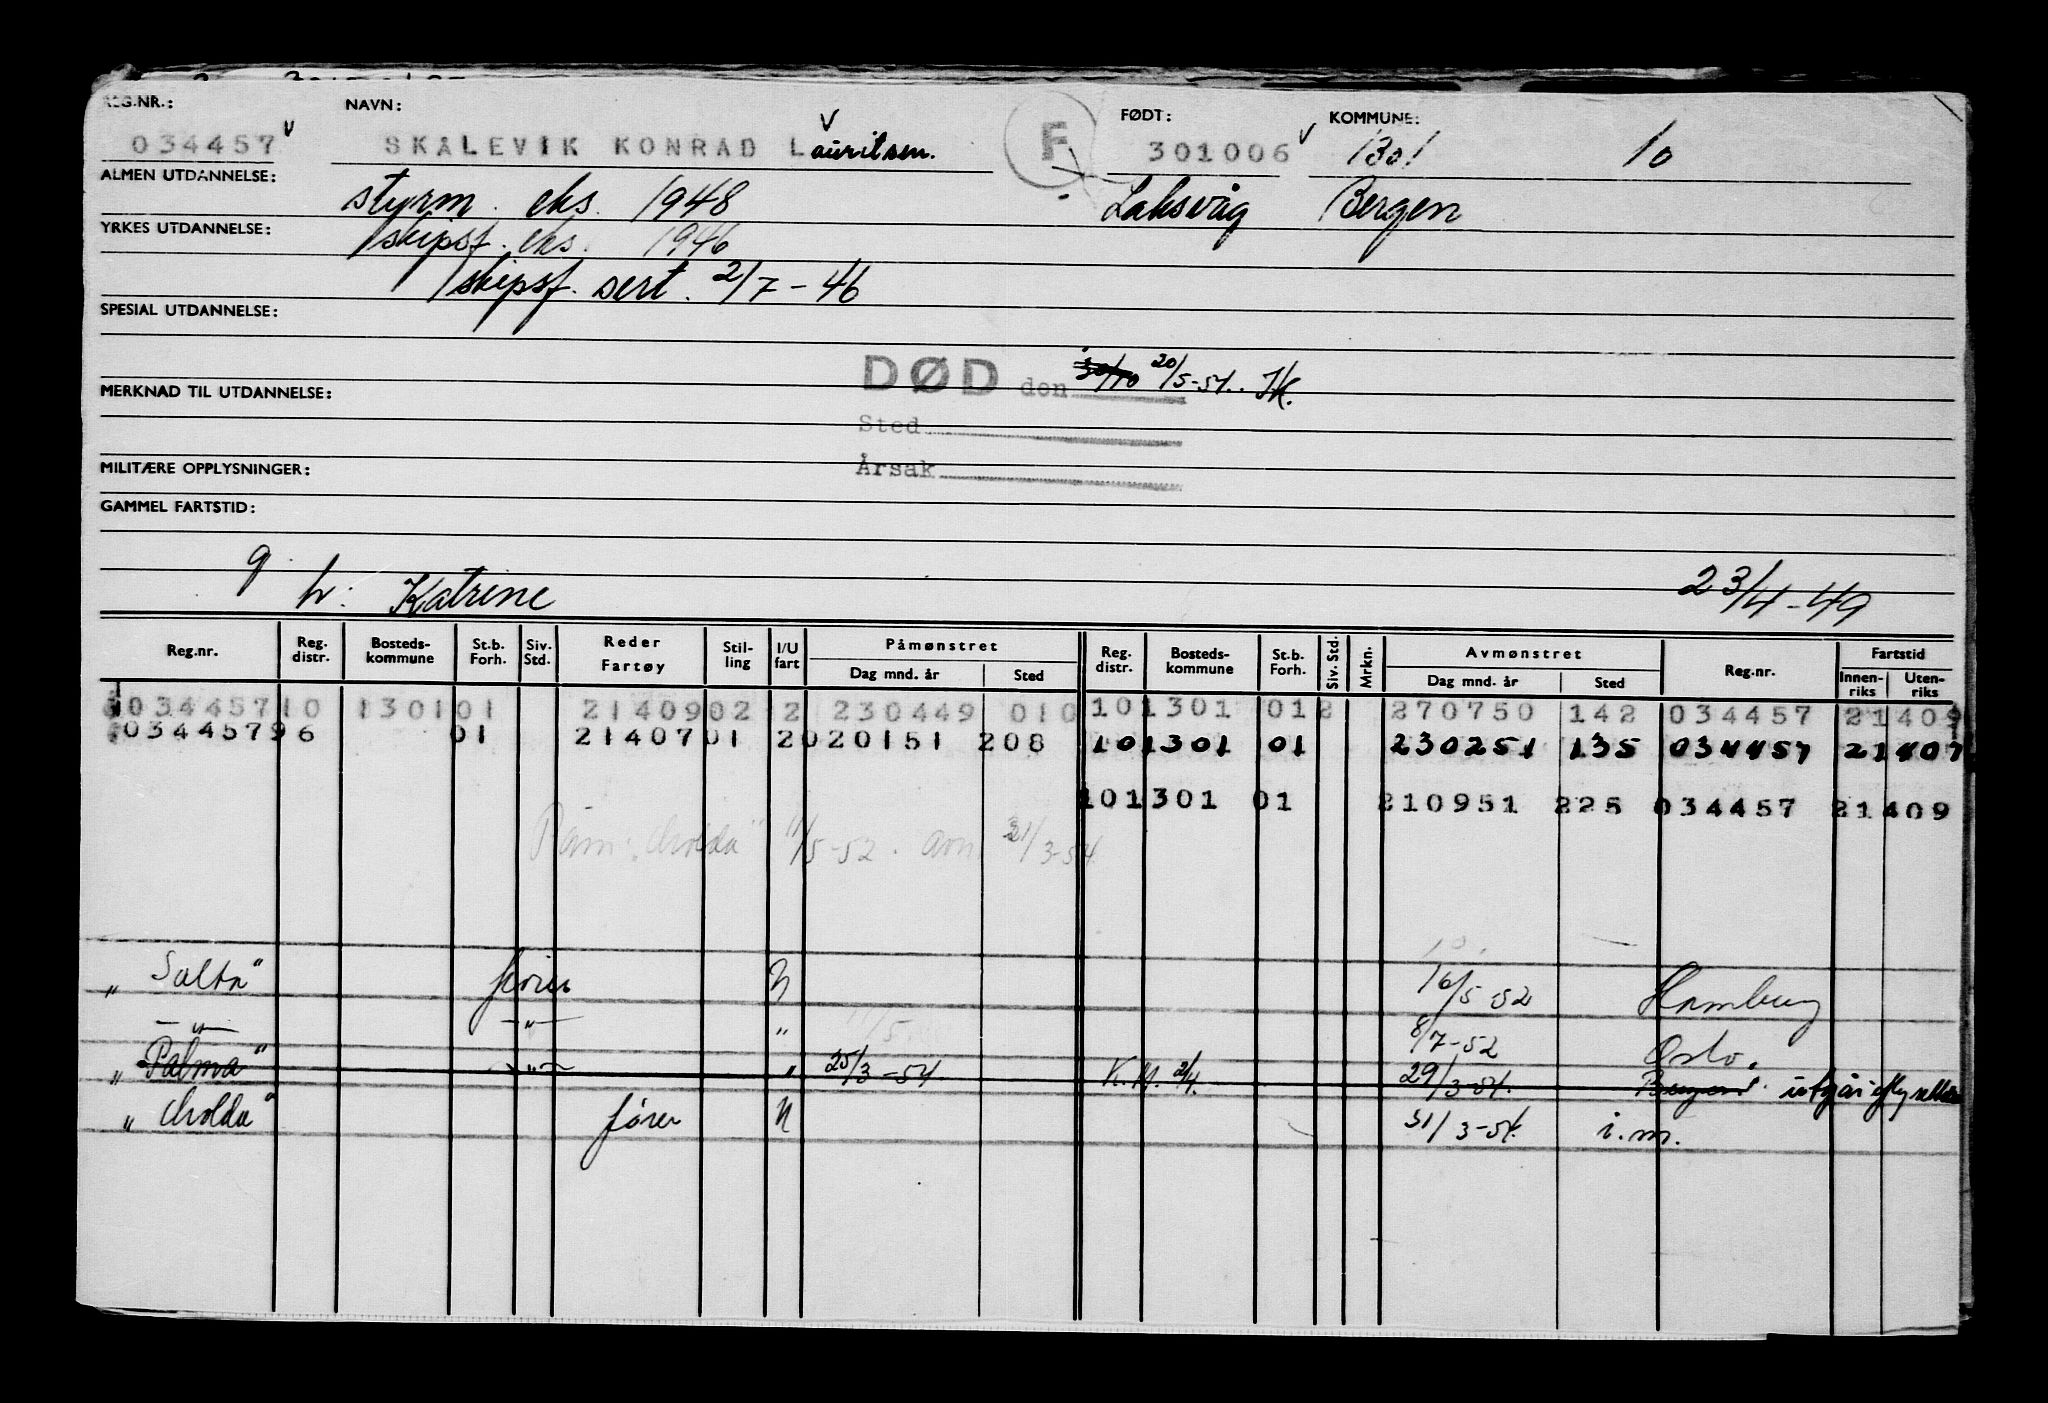 REG.NR.: NAVN: FØDT: KOMMUNE:
034457 SKALEVIK KONRAD Lauritsen. F 301006 1301 10
ALMEN UTDANNELSE: styrm. eks. 1948 Laksvåg Bergen
YRKES UTDANNELSE: skipsf. eks. 1946
skipsf. sert. 2/7-46
SPESIAL UTDANNELSE:
DØD den 30/10 20/5-54.
MERKNAD TIL UTDANNELSE:
Sted
MILITÆRE OPPLYSNINGER: Årsak
GAMMEL FARTSTID:
g. h: Katrine 23/4-49
Reg.nr. Reg. distr. Bosteds-kommune St.b. Forh. Siv. Std. Reder Fartøy Stil-ling I/U fart Påmønstret Dag mnd. år Sted Reg. distr. Bosteds-kommune St.b. Forh. Siv. Std. Mrkn. Avmønstret Dag mnd. år Sted Reg.nr. Fartstid Innen-riks Uten-riks
034457 10 1301 01 21409 02 2 230449 010 10 1301 01 2 270750 142 034457 21409
034457 96 01 21407 01 2 020151 208 10 1301 01 230251 135 034457 21407
10 1301 01 210951 225 034457 21409
Påm. "Molda" 11/5-52. avm. 31/3-54
"Salta" fører U 16/5-52 Hamburg
-"- -"- " 8/7-52 Oslo.
"Palma" -"- " 25/3-54 K.M. 2/4. 29/3-54. Bergen. utgår
"Molda" fører U 31/3-54. i.m.